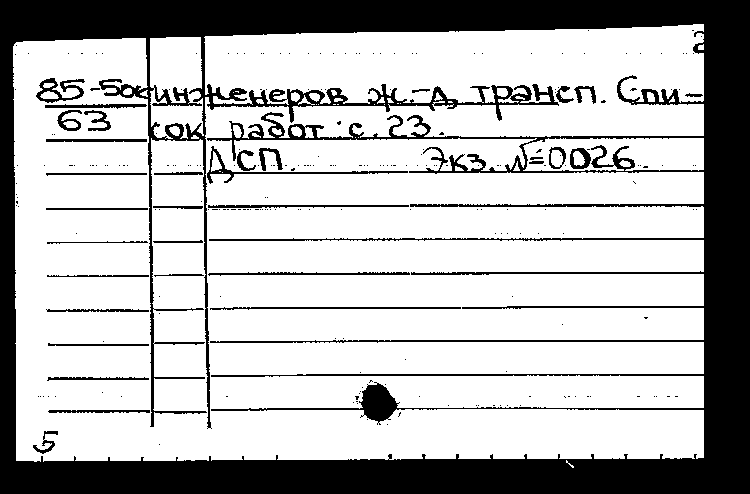 2
85-5ок инженеров ж.-д. трансп. Спи-
63 сок работ: с. 23.
ДСП. Экз. №0026.
5